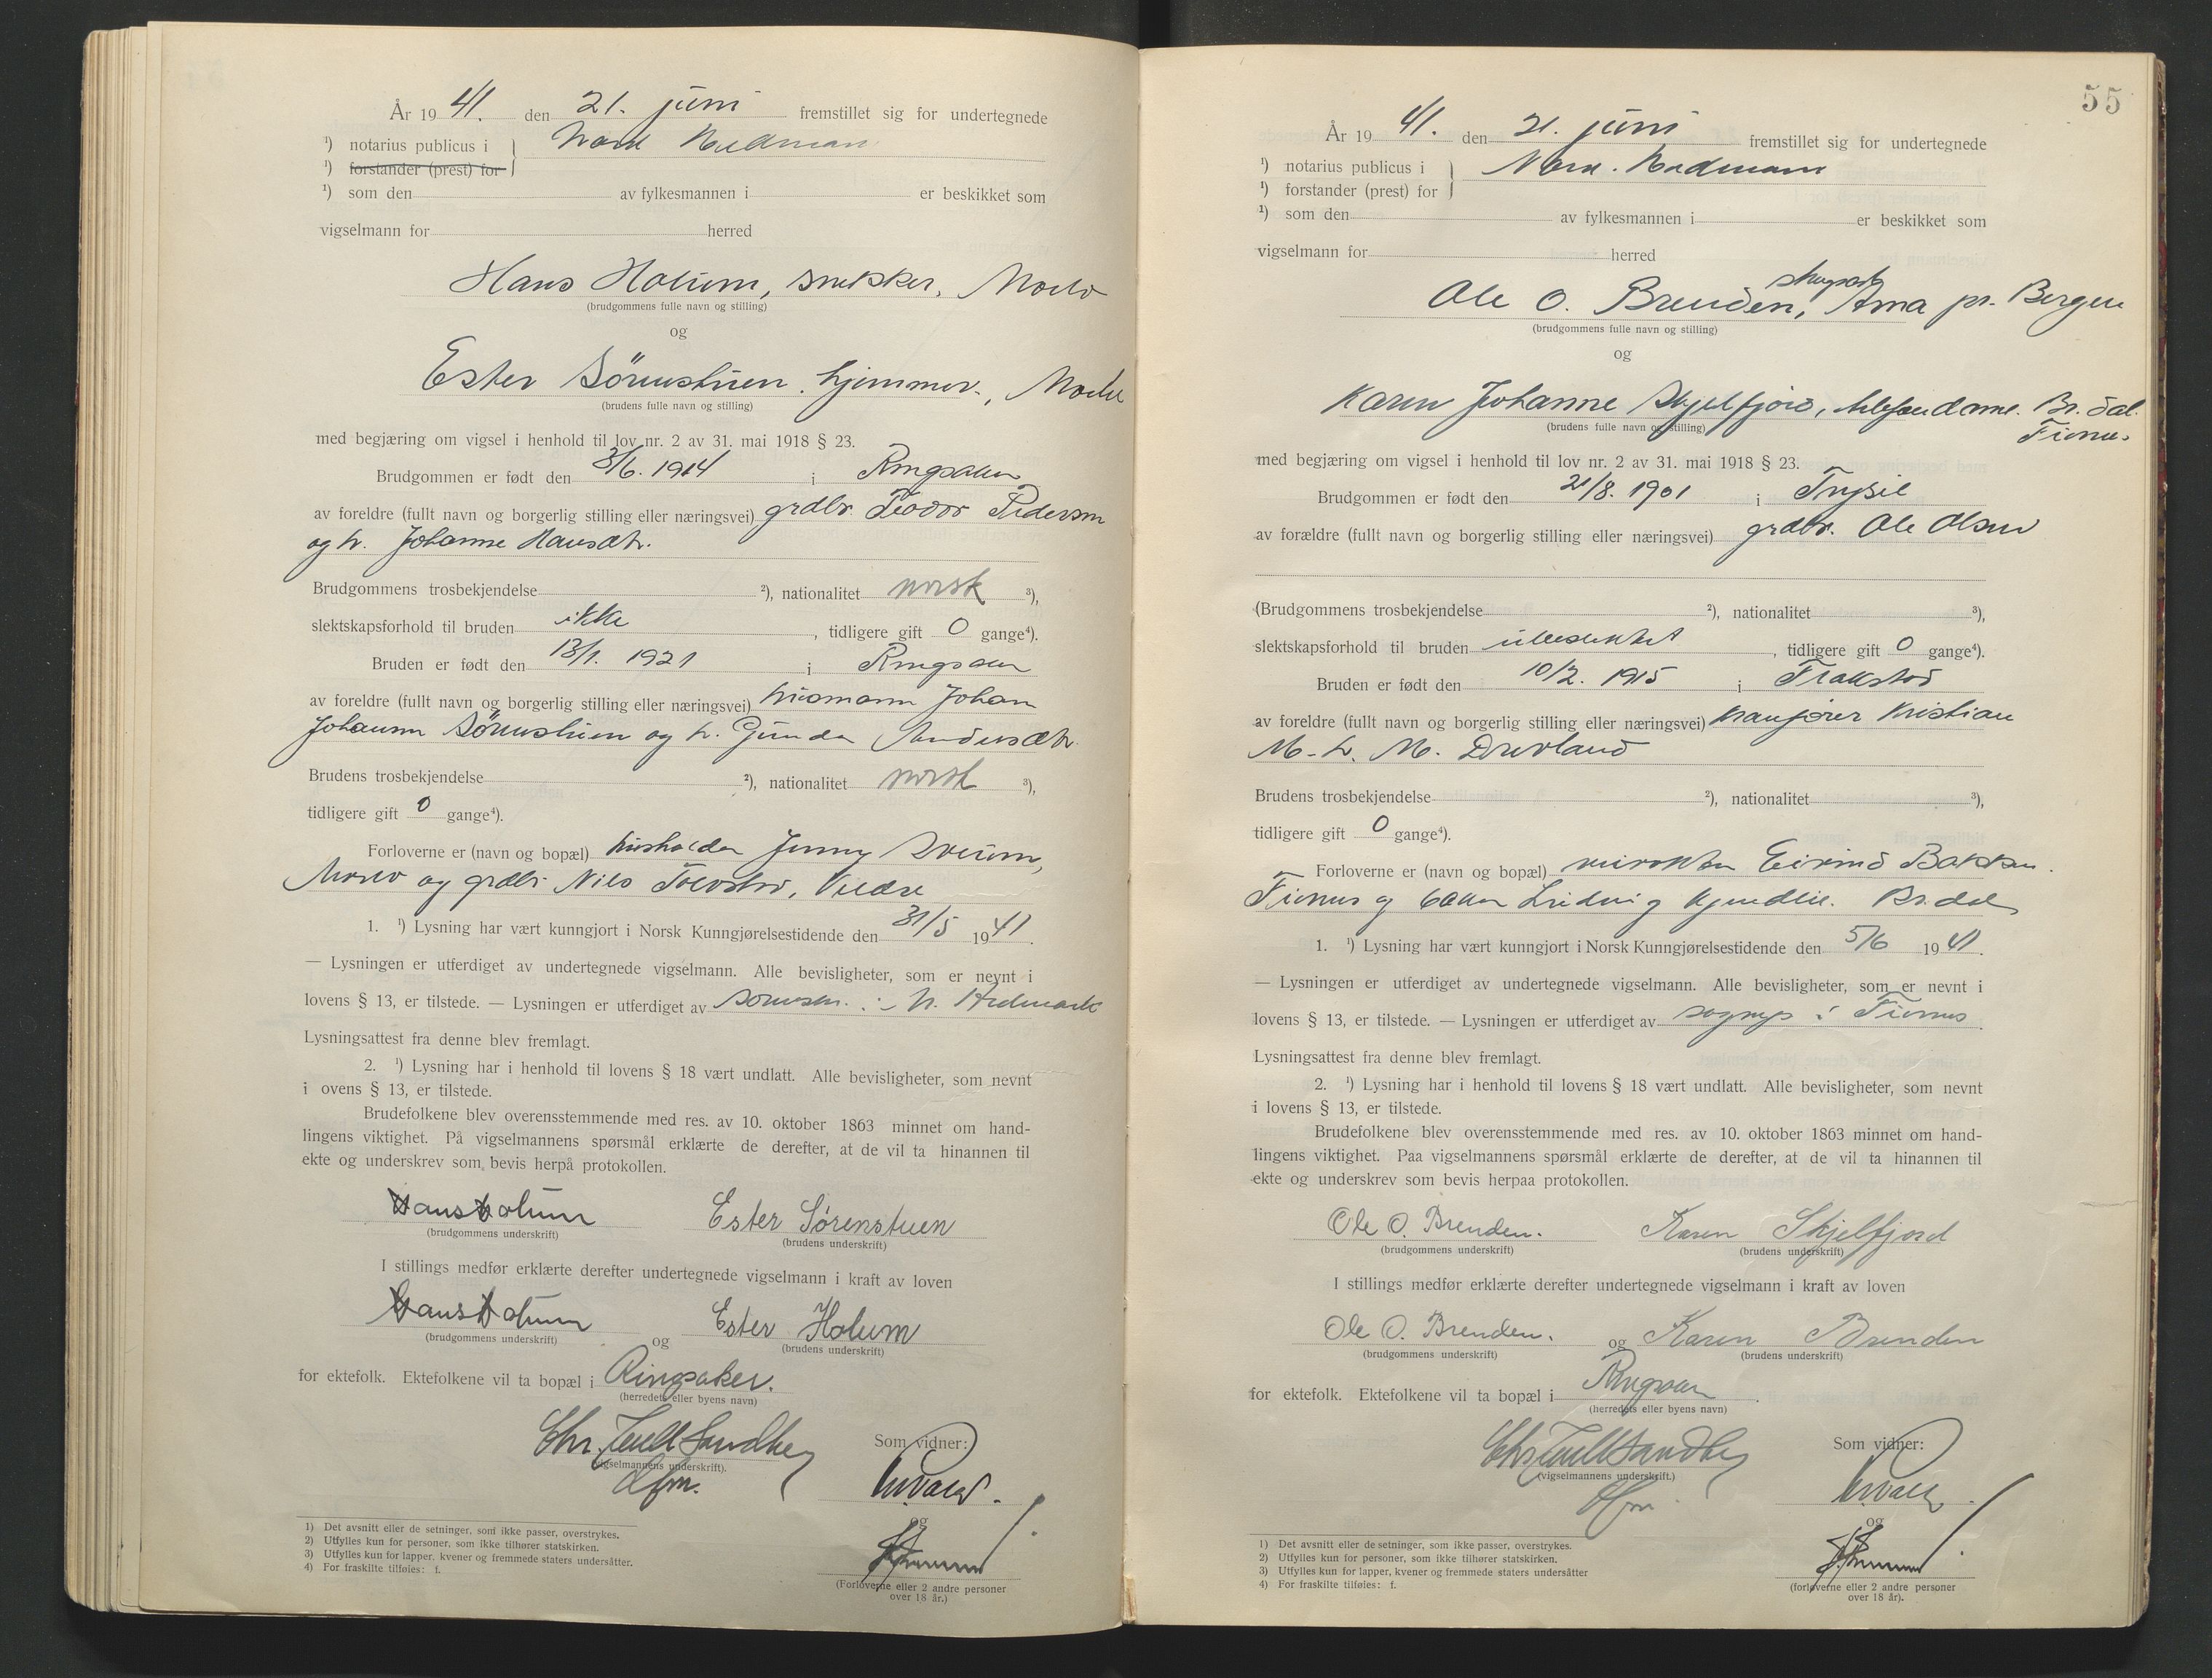 År 19 41. den 21. juni fremstillet sig for undertegnede
¹) notarius publicus i Nord Hedmark
¹) forstander (prest) for
¹) som den av fylkesmannen i er beskikket som
vigselmann for herred
Hans Holum, snekker, Moelv
(brudgommens fulle navn og stilling)
og
Ester Sörenstuen, hjemmev., Moelv
(brudens fulle navn og stilling)
med begjæring om vigsel i henhold til lov nr. 2 av 31. mai 1918 § 23.
Brudgommen er født den 3/6. 1914 i Ringsaker
av foreldre (fullt navn og borgerlig stilling eller næringsvei) grdbr. Teodor Pedersen
og h. Johanne Hansdtr.
Brudgommens trosbekjendelse ²), nationalitet norsk ³),
slektskapsforhold til bruden ikke, tidligere gift 0 gange⁴).
Bruden er født den 13/1. 1921 i Ringsaker
av foreldre (fullt navn og borgerlig stilling eller næringsvei) husmann Johan
Johansen Sörenstuen og h. Gunda Andersdtr.
Brudens trosbekjendelse ²), nationalitet norsk ³),
tidligere gift 0 gange⁴).
Forloverne er (navn og bopæl) husholder Jenny
Moelv og grdbr Nils Veldre
1. ¹) Lysning har vært kunngjort i Norsk Kunngjørelsestidende den 31/5 1941.
— Lysningen er utferdiget av undertegnede vigselmann. Alle bevisligheter, som er nevnt i
lovens § 13, er tilstede. — Lysningen er utferdiget av sorensk. i N. Hedmark
Lysningsattest fra denne blev fremlagt.
2. ¹) Lysning har i henhold til lovens § 18 vært undlatt. Alle bevisligheter, som nevnt
i ovens § 13, er tilstede.
Brudefolkene blev overensstemmende med res. av 10. oktober 1863 minnet om hand-
lingens viktighet. På vigselmannens spørsmål erklærte de derefter, at de vil ta hinannen til
ekte og underskrev som bevis herpå protokollen.
Hans Holum Ester Sørenstuen
(brudgommens underskrift) (brudens underskrift)
I stillings medfør erklærte derefter undertegnede vigselmann i kraft av loven
Hans Holum og Ester Holum
(brudgommens underskrift) (brudens underskrift)
for ektefolk. Ektefolkene vil ta bopæl i Ringsaker.
(herredets eller byens navn)
Chr. Juell Sandberg Som vidner:
(vigselmannens underskrift).
dfm.
og
(Forloverne eller 2 andre personer
over 18 år.)
1) Det avsnitt eller de setninger, som ikke passer, overstrykes.
2) Utfylles kun for personer, som ikke tilhører statskirken.
3) Utfylles kun for lapper, kvener og fremmede staters undersåtter.
4) For fraskilte tilføies: f.
55
År 19 41. den 21. juni fremstillet sig for undertegnede
¹) notarius publicus i Nord-Hedmark
¹) forstander (prest) for
¹) som den av fylkesmannen i er beskikket som
vigselmann for herred
Ole O. Brenden, Arna pr. Bergen
(brudgommens fulle navn og stilling)
og
Karen Johanne Skjelfjord, Br.dal.
(brudens fulle navn og stilling)
med begjæring om vigsel i henhold til lov nr. 2 av 31. mai 1918 § 23.
Brudgommen er født den 21/8. 1901 i Trysil
av forældre (fullt navn og borgerlig stilling eller næringsvei) grdbr. Ole Olsen
(Brudgommens trosbekjendelse ²), nationalitet ³),
slektskapsforhold til bruden ubeslektet, tidligere gift 0 gange⁴).
Bruden er født den 10/2. 1915 i Flakstad
av foreldre (fullt navn og borgerlig stilling eller næringsvei) Kristian
M. h. M. Drevland
Brudens trosbekjendelse ²), nationalitet ³),
tidligere gift 0 gange⁴).
Forloverne er (navn og bopæl) Eivind Bakken.
og baker Ludvig Br.dal
1. ¹) Lysning har vært kunngjort i Norsk Kunngjørelsestidende den 5/6 1941.
— Lysningen er utferdiget av undertegnede vigselmann. Alle bevisligheter, som er nevnt i
lovens § 13, er tilstede. — Lysningen er utferdiget av sognepr i
Lysningsattest fra denne blev fremlagt.
2. ¹) Lysning har i henhold til lovens § 18 vært undlatt. Alle bevisligheter, som nevnt
i lovens § 13, er tilstede.
Brudefolkene blev overensstemmende med res. av 10. oktober 1863 minnet om hand-
lingens viktighet. Paa vigselmannens spørsmål erklærte de derefter, at de vil ta hinannen til
ekte og underskrev som bevis herpaa protokollen.
Ole O. Brenden. Karen Skjelfjord
(brudgommens underskrift) (brudens underskrift)
I stillings medfør erklærte derefter undertegnede vigselmann i kraft av loven
Ole O. Brenden. og Karen Brenden
(brudgommens underskrift) (brudens underskrift)
for ektefolk. Ektefolkene vil ta bopæl i Ringsaker.
(herredets eller byens navn)
Chr Juell Sandberg Som vidner:
(vigselmannens underskrift.)
dfm.
og
(forloverne eller 2 andre personer
over 18 år).
1) Det avsnitt eller de setninger, som ikke passer, overstrykes.
2) Utfylles kun for personer, som ikke tilhører statskirken.
3) Utfylles kun for lapper, kvener og fremmede staters undersåtter
4) For fraskilte tilføies: f.